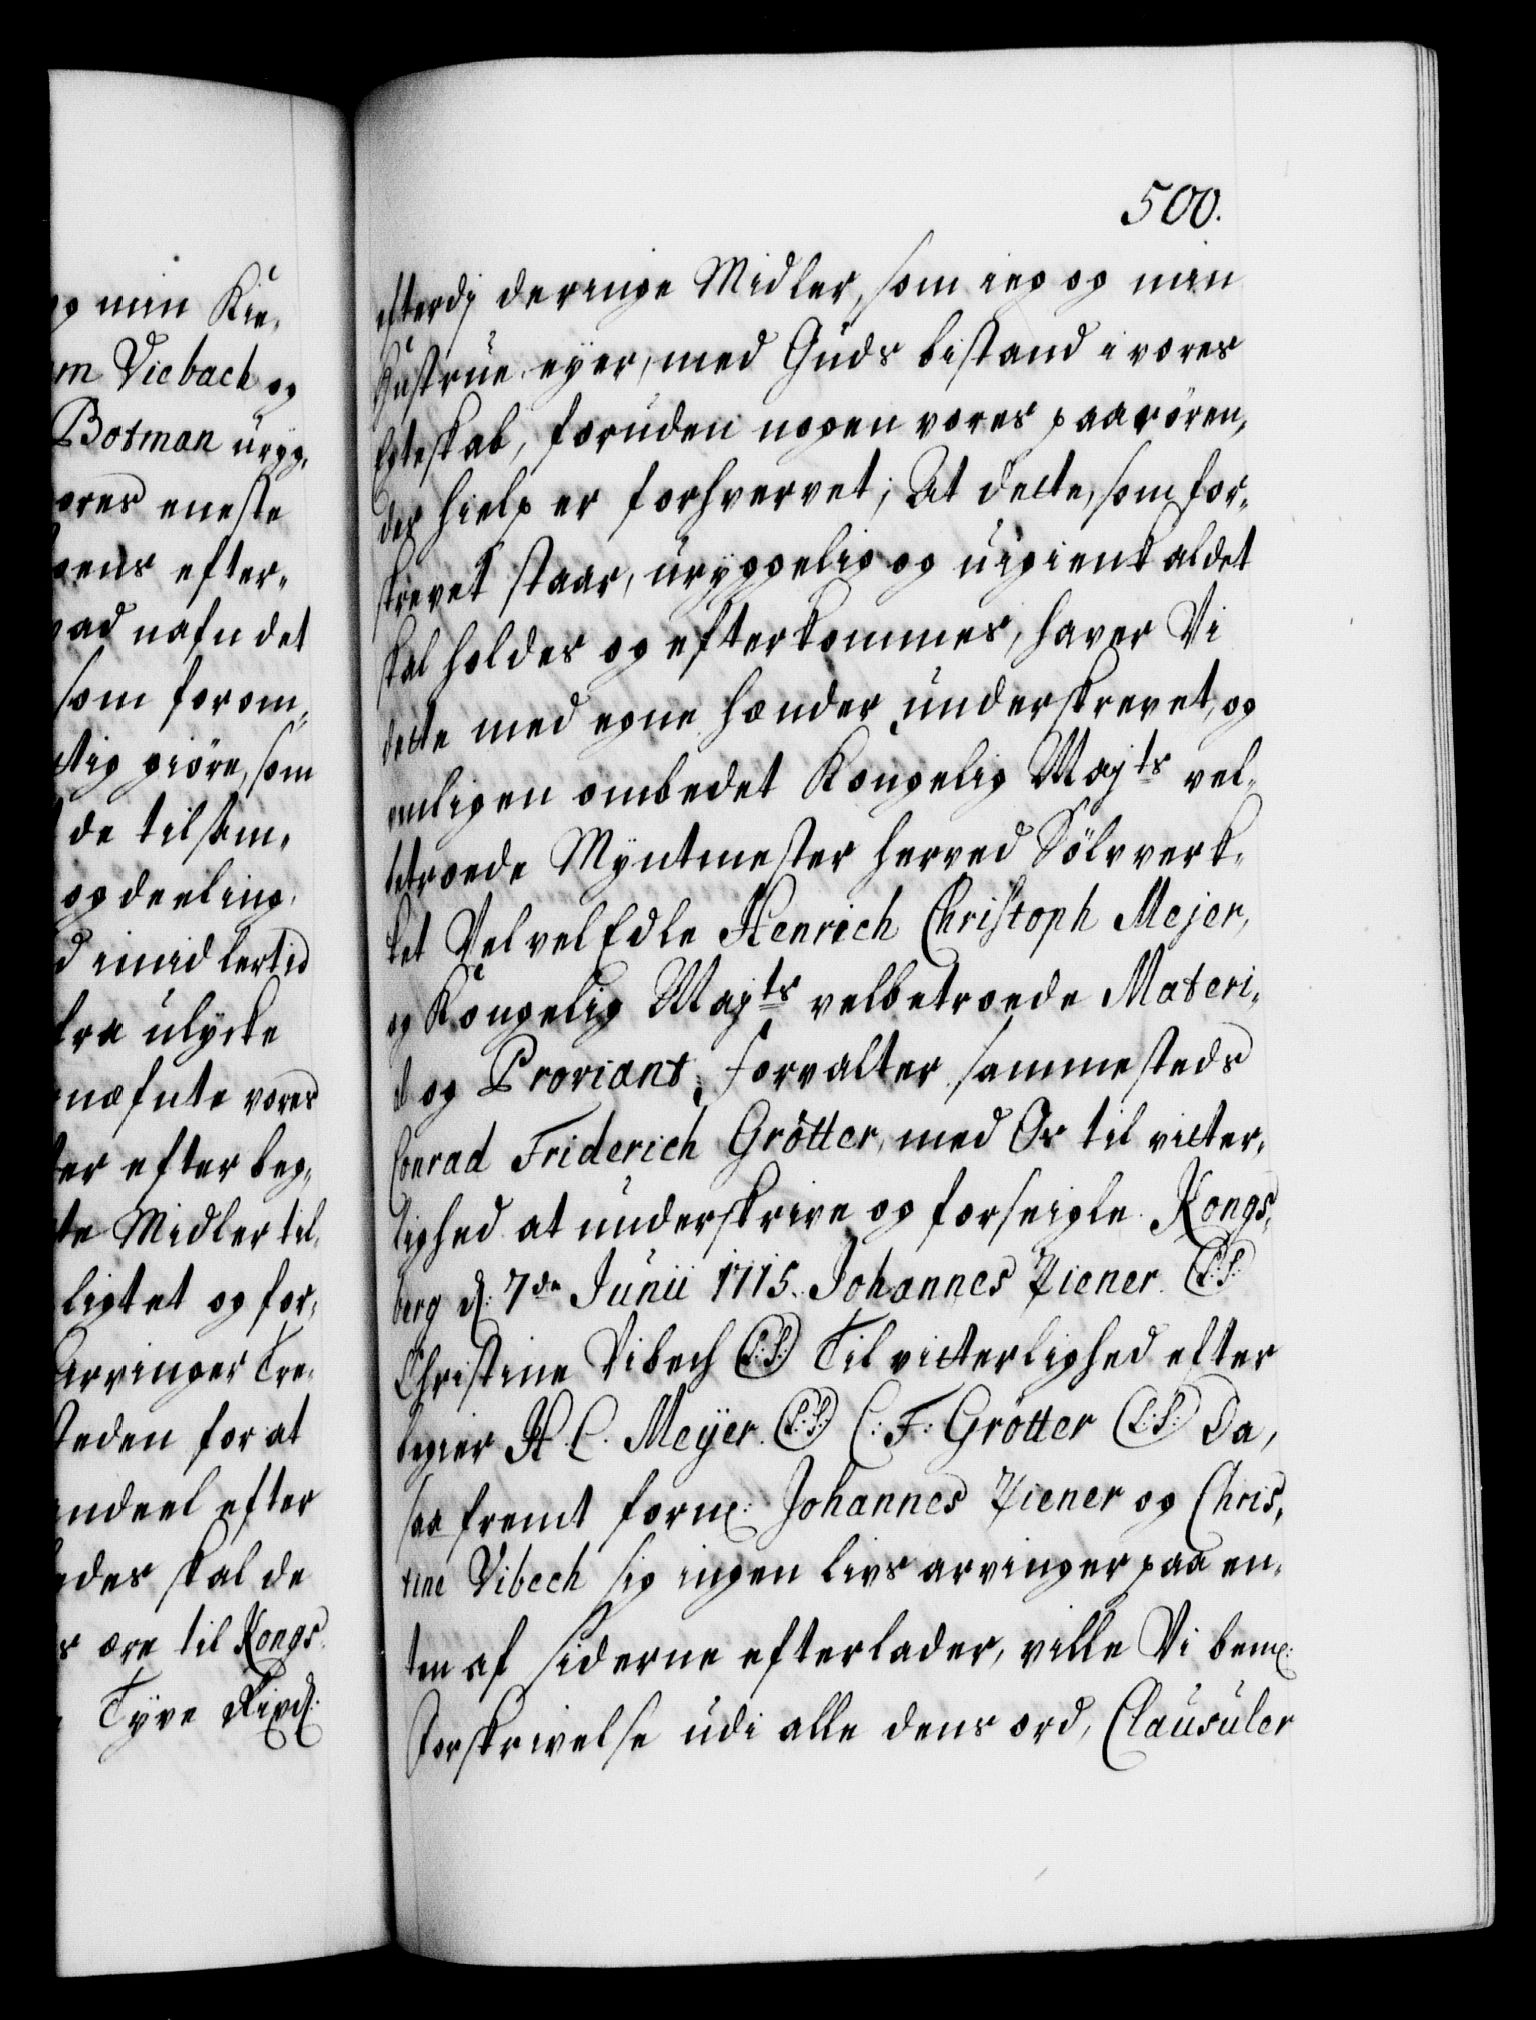 og min Kie-
Viebach og
Botman uryg,
vores eneste
efter-
nafn det
som forom-
giöre, som
de tilsam-
og deeling
imidlertid
ulycke
vores
efter beg-
Midler til
ligtet og for-
Arvinger Tre-
for at
efter
skal de
ære til Kongs
Tyve Rixd:
500.
efterdj de ringe Midler, som ieg og min
Hustrue eyer, med Guds bistand i vores
Egteskab, foruden nogen vores paarören-
des hielp er forhvervet; At dette, som for-
skrevet staar, uryggelig og uigienkaldet
skal holdes og efterkommes, haver Vi
dette med egne hænder underskrevet, og
venligen ombedet Kongelig Majts vel-
betroede Myntmester herved Sölvverk-
ket Velvel Edle Henrich Christoph Mejer,
og Kongelig Majts velbetroede Materi-
al og Proviant-Forvalter sammesteds
Conrad Friderich Grötter, med Os til vitter-
lighed at underskrive og forseigle. Kongs-
berg d: 7de Junii 1715. Johannes Ziener (L:S:)
Christine Vibech (L:S:) Til vitterlighed efter
begier H. C. Meÿer. (L:S:) C: F: Grötter (L:S:) Da,
saafremt forne: Johannes Ziener og Chris-
tine Vibech sig ingen livs arvinger paa en-
ten af siderne efterlader, ville Vi bemte:
Forskrivelse udi alle dens ord, Clausuler